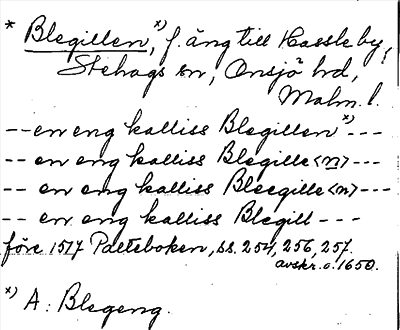 * Blegillen, x) f. äng till Hassle by,
Stehags sn, Onsjö hd,
Malm. l.
-- en eng kalliss Blegillen x) ---
-- en eng kalliss Blegille<n> ---
-- en eng kalliss Bleegille<n> ---
-- en eng kalliss Blegill ---
före 1577 Palteboken, ss. 254, 256, 257.
avskr. o. 1650.
x) A: Blegeng.